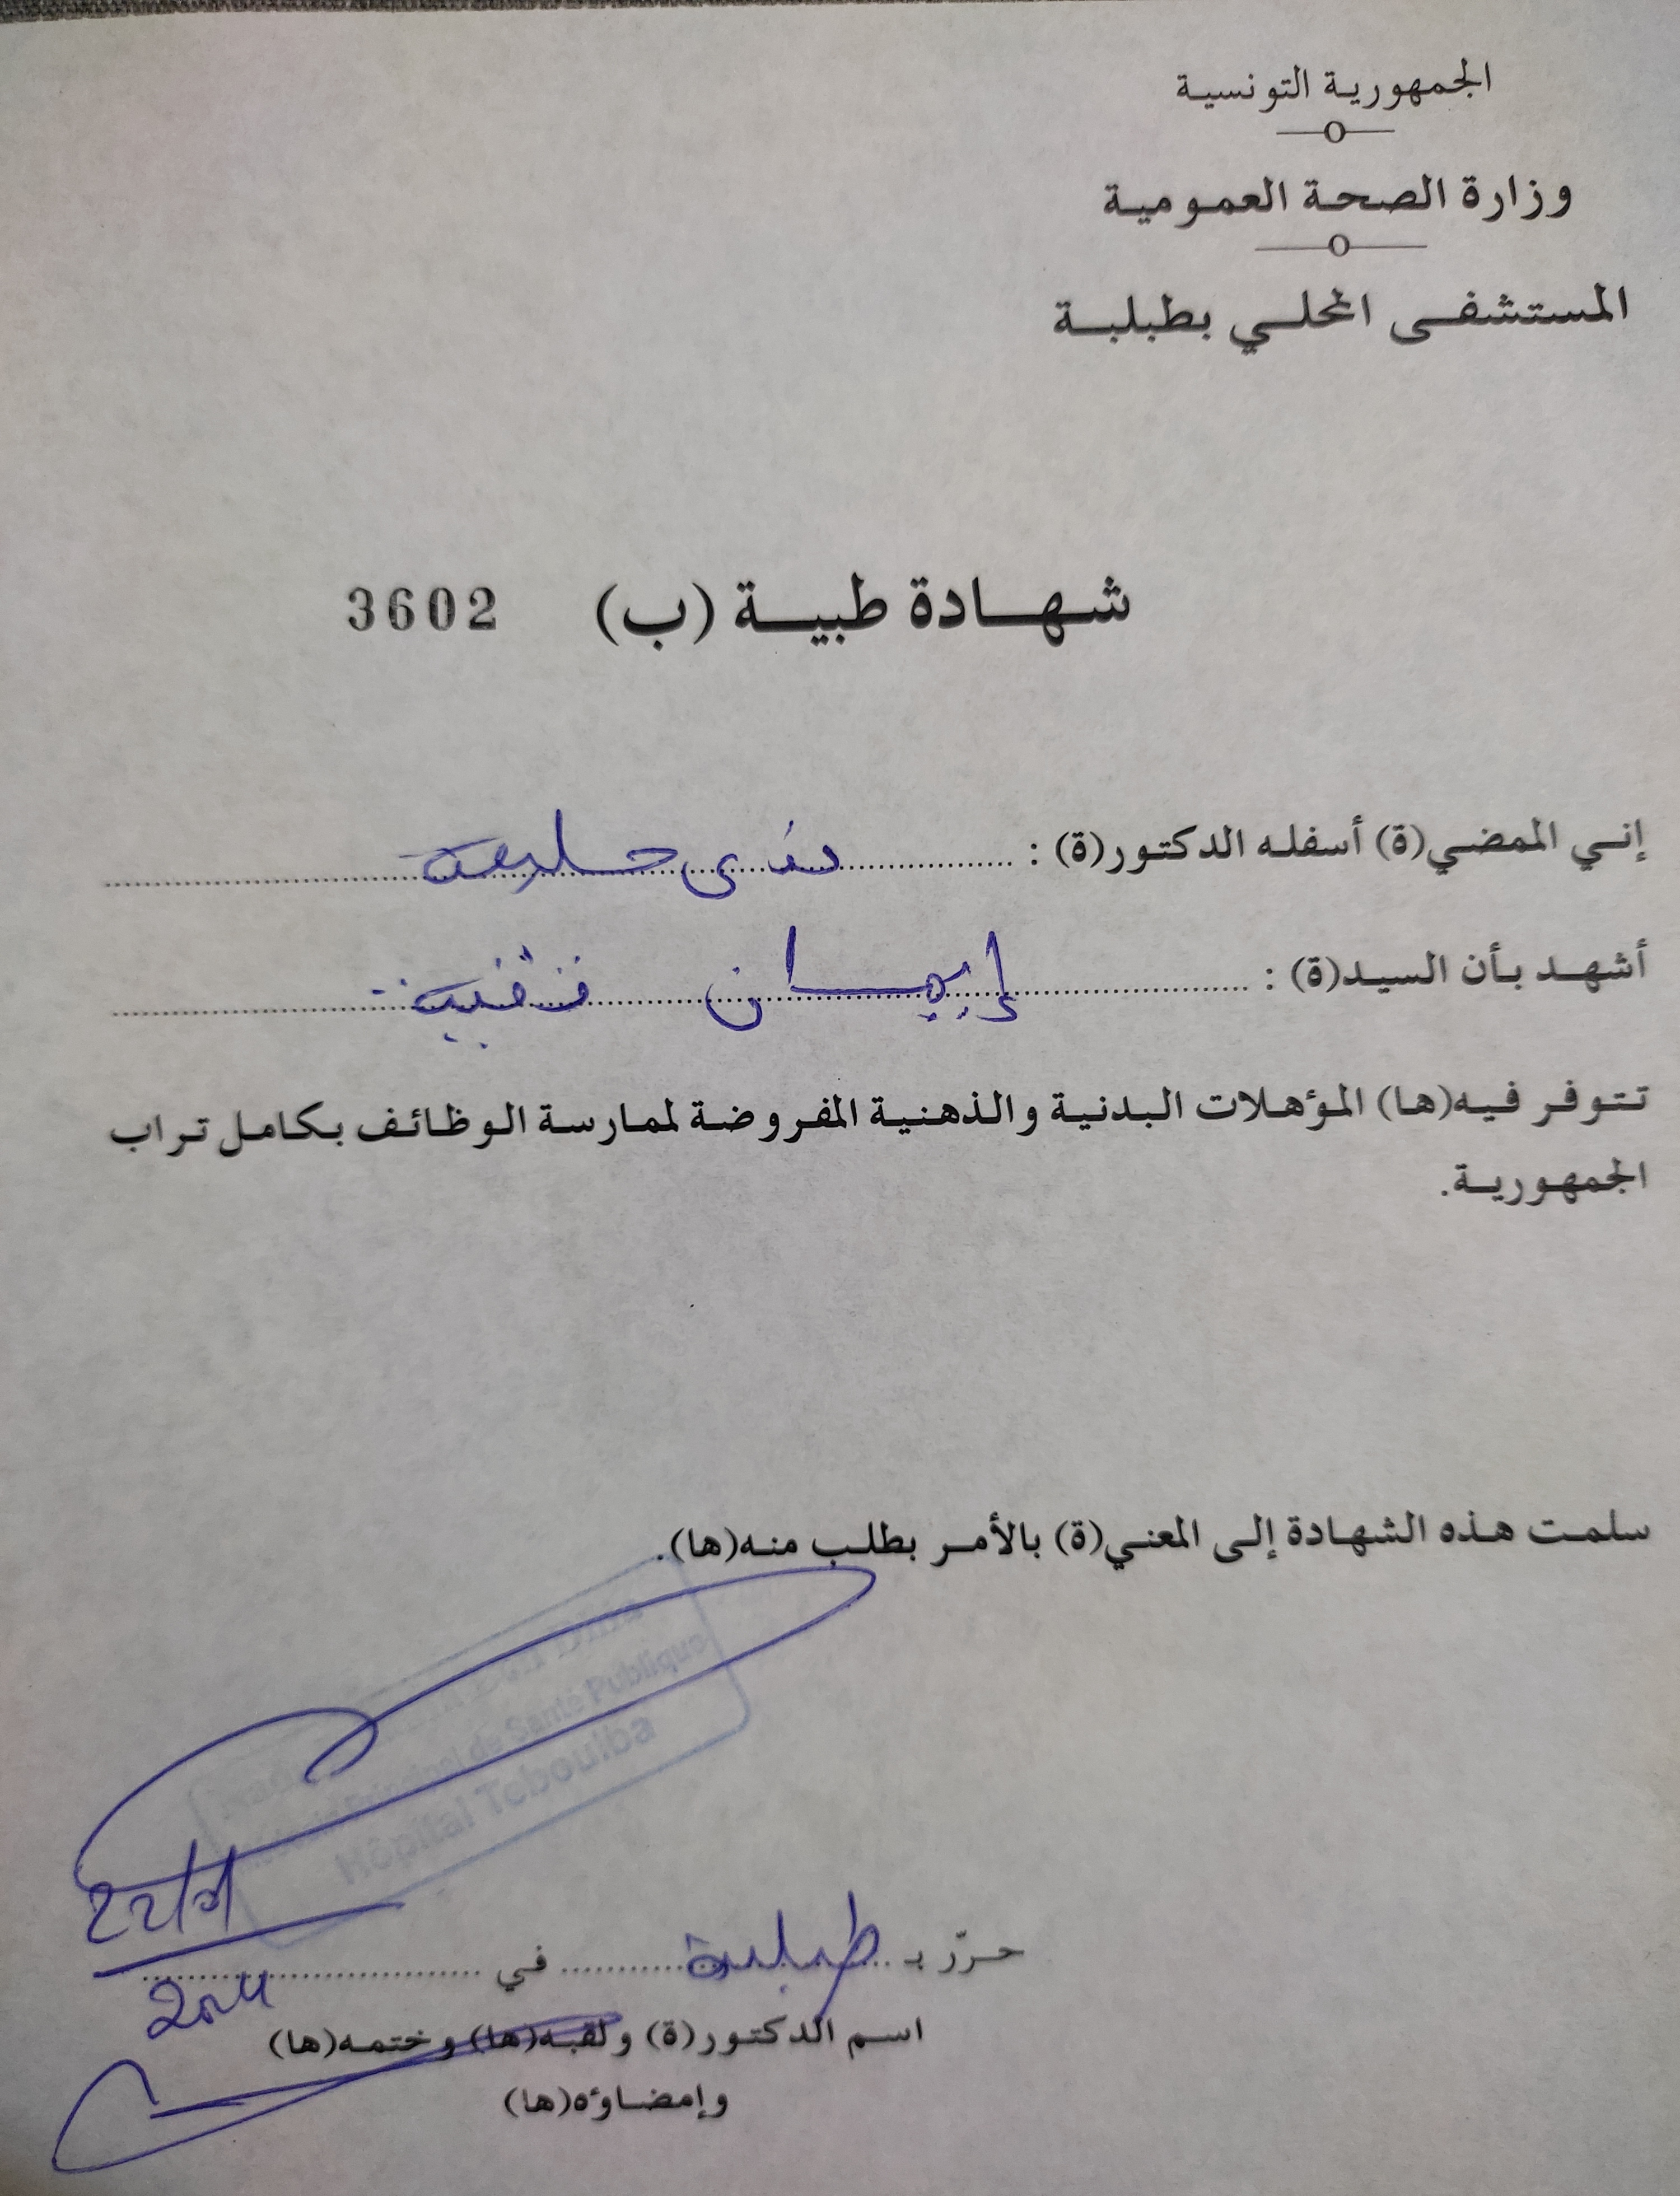 الجمهورية التونسية
وزارة الصحة العمومية
المستشفى المحلي بطبلبة
شهادة طبية (ب) 3602
إني الممضي(ة) أسفله الدكتور(ة) :
أشهد بأن السيد(ة) : إيمان
تتوفر فيه(ها) المؤهلات البدنية والذهنية المفروضة لممارسة الوظائف بكامل تراب
الجمهورية.
سلمت هذه الشهادة إلى المعني(ة) بالأمر بطلب منه(ها).
de Santé Publique
Hôpital Teboulba
حرّر بـ طبلبة في
اسم الدكتور(ة) ولقبه(ها) وختمه(ها)
وإمضاؤه(ها)